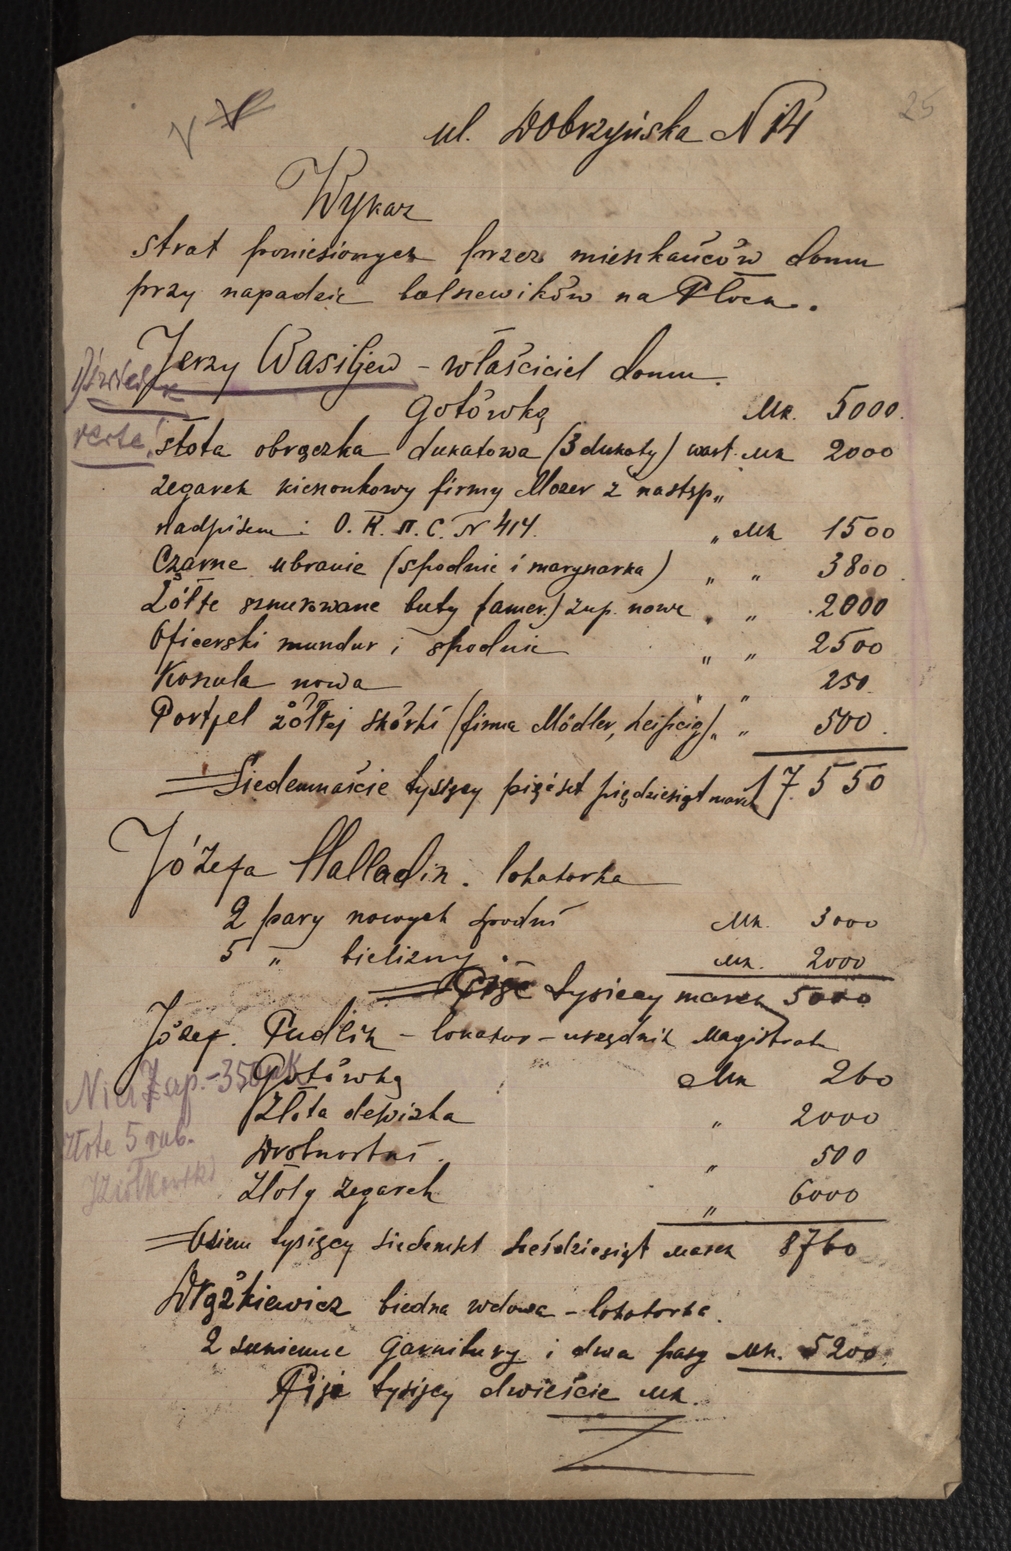 25
ul. Dobrzyńska N 14
Wykaz
strat poniesionych przez mieszkańców domu
przy napadzie bolszewików na Płock.
Jerzy Wasiljew - właściciel domu.
Gotówką Mk. 5000.
verte!
złota obrączka dukatowa (3 dukaty) wart. Mk 2000
zegarek kieszonkowy firmy Mozer z następ„
nadpisem: O. K. П. C. N 414. „ Mk 1500
Czarne ubranie (spodnie i marynarka) „ „ 3800.
Żółte sznurowane buty (amer.) zup. nowe „ „ 2000
Oficerski mundur i spodnie „ „ 2500
Koszula nowa „ „ 250.
Portfel żółtej skórki (firma Mödler, Leipcig). „ „ 500.
Siedemnaście tysięcy pięćset pięćdziesiąt marek 17.550
Józefa Malladin. lokatorka
2 pary nowych spodni Mk. 3000
5 „ bielizny. Mk. 2000
Pięć tysięcy marek 5000
Józef. Pudlik - lokator - urzędnik Magistratu
Gotówką Mk 260
Złota dewizka „ 2000
Drobnostki. „ 500
Złoty zegarek „ 6000
złote 5 rub.
Ziółkowski
Osiem tysięcy siedemset sześćdziesiąt marek 8760
Drążkiewicz biedna wdowa - lokatorka.
2 sukienne garnitury i dwa pasy Mk. 5200.
Pięć tysięcy dwieście Mk.